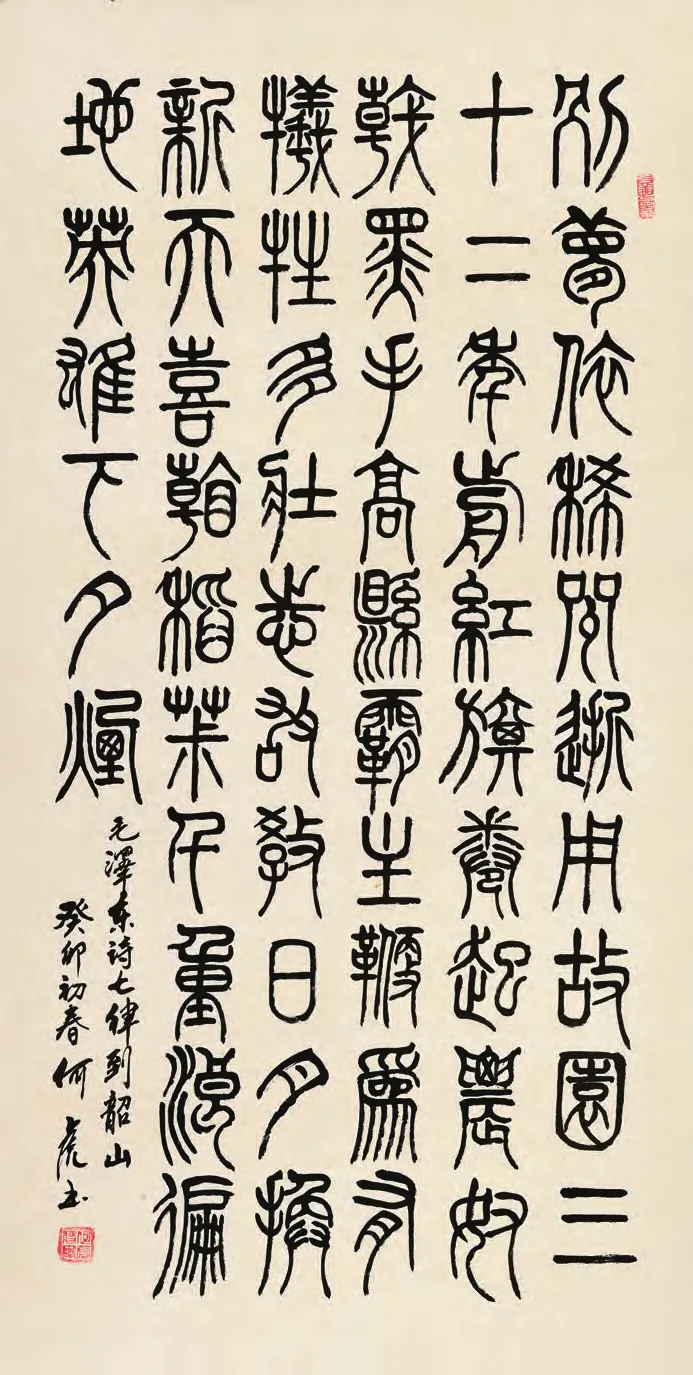 別夢依稀咒逝川故園三
十二年前紅旗卷起農奴
戟黑手高縣霸主鞭爲有
犧牲多壯志敢教日月換
新天喜看稻菽千重浪遍
地英雄下夕煙
毛澤东诗七律到韶山
癸卯初春何虎书